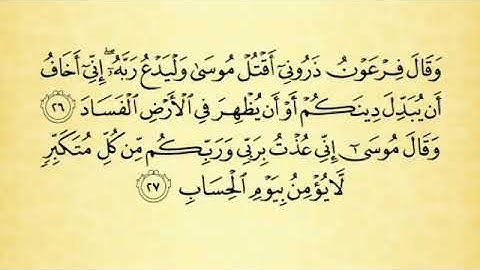 وَقَالَ فِرْعَوْنُ ذَرُونِىٓ أَقْتُلْ مُوسَىٰ وَلْيَدْعُ رَبَّهُۥٓ ۖ إِنِّىٓ أَخَافُ
أَن يُبَدِّلَ دِينَكُمْ أَوْ أَن يُظْهِرَ فِى ٱلْأَرْضِ ٱلْفَسَادَ ٢٦
وَقَالَ مُوسَىٰٓ إِنِّى عُذْتُ بِرَبِّى وَرَبِّكُم مِّن كُلِّ مُتَكَبِّرٍ
لَّا يُؤْمِنُ بِيَوْمِ ٱلْحِسَابِ ٢٧